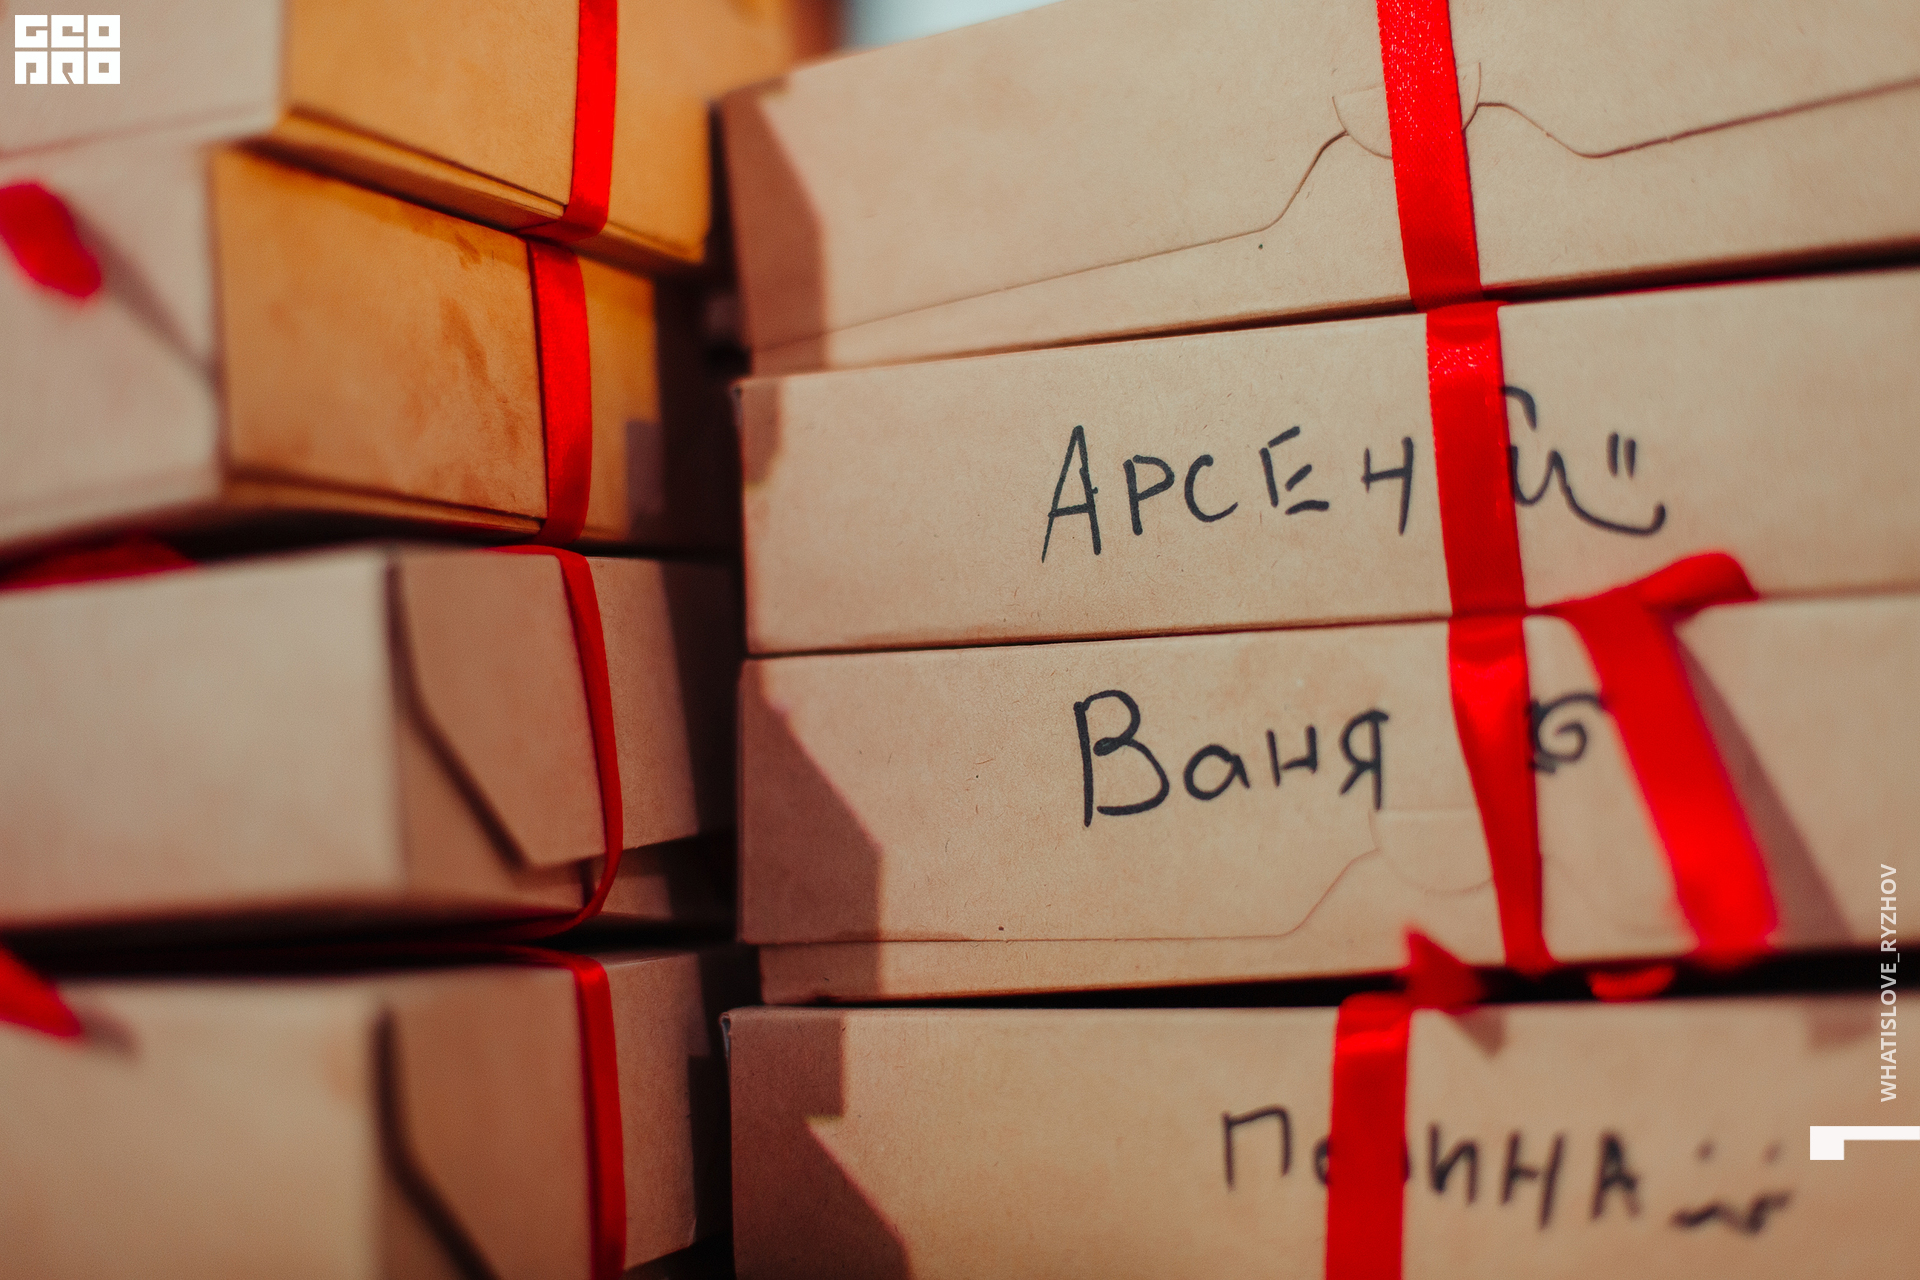 GEO
PRO
АРСЕНИЙ
Ваня
ПОЛИНА
WHATISLOVE_RYZHOV